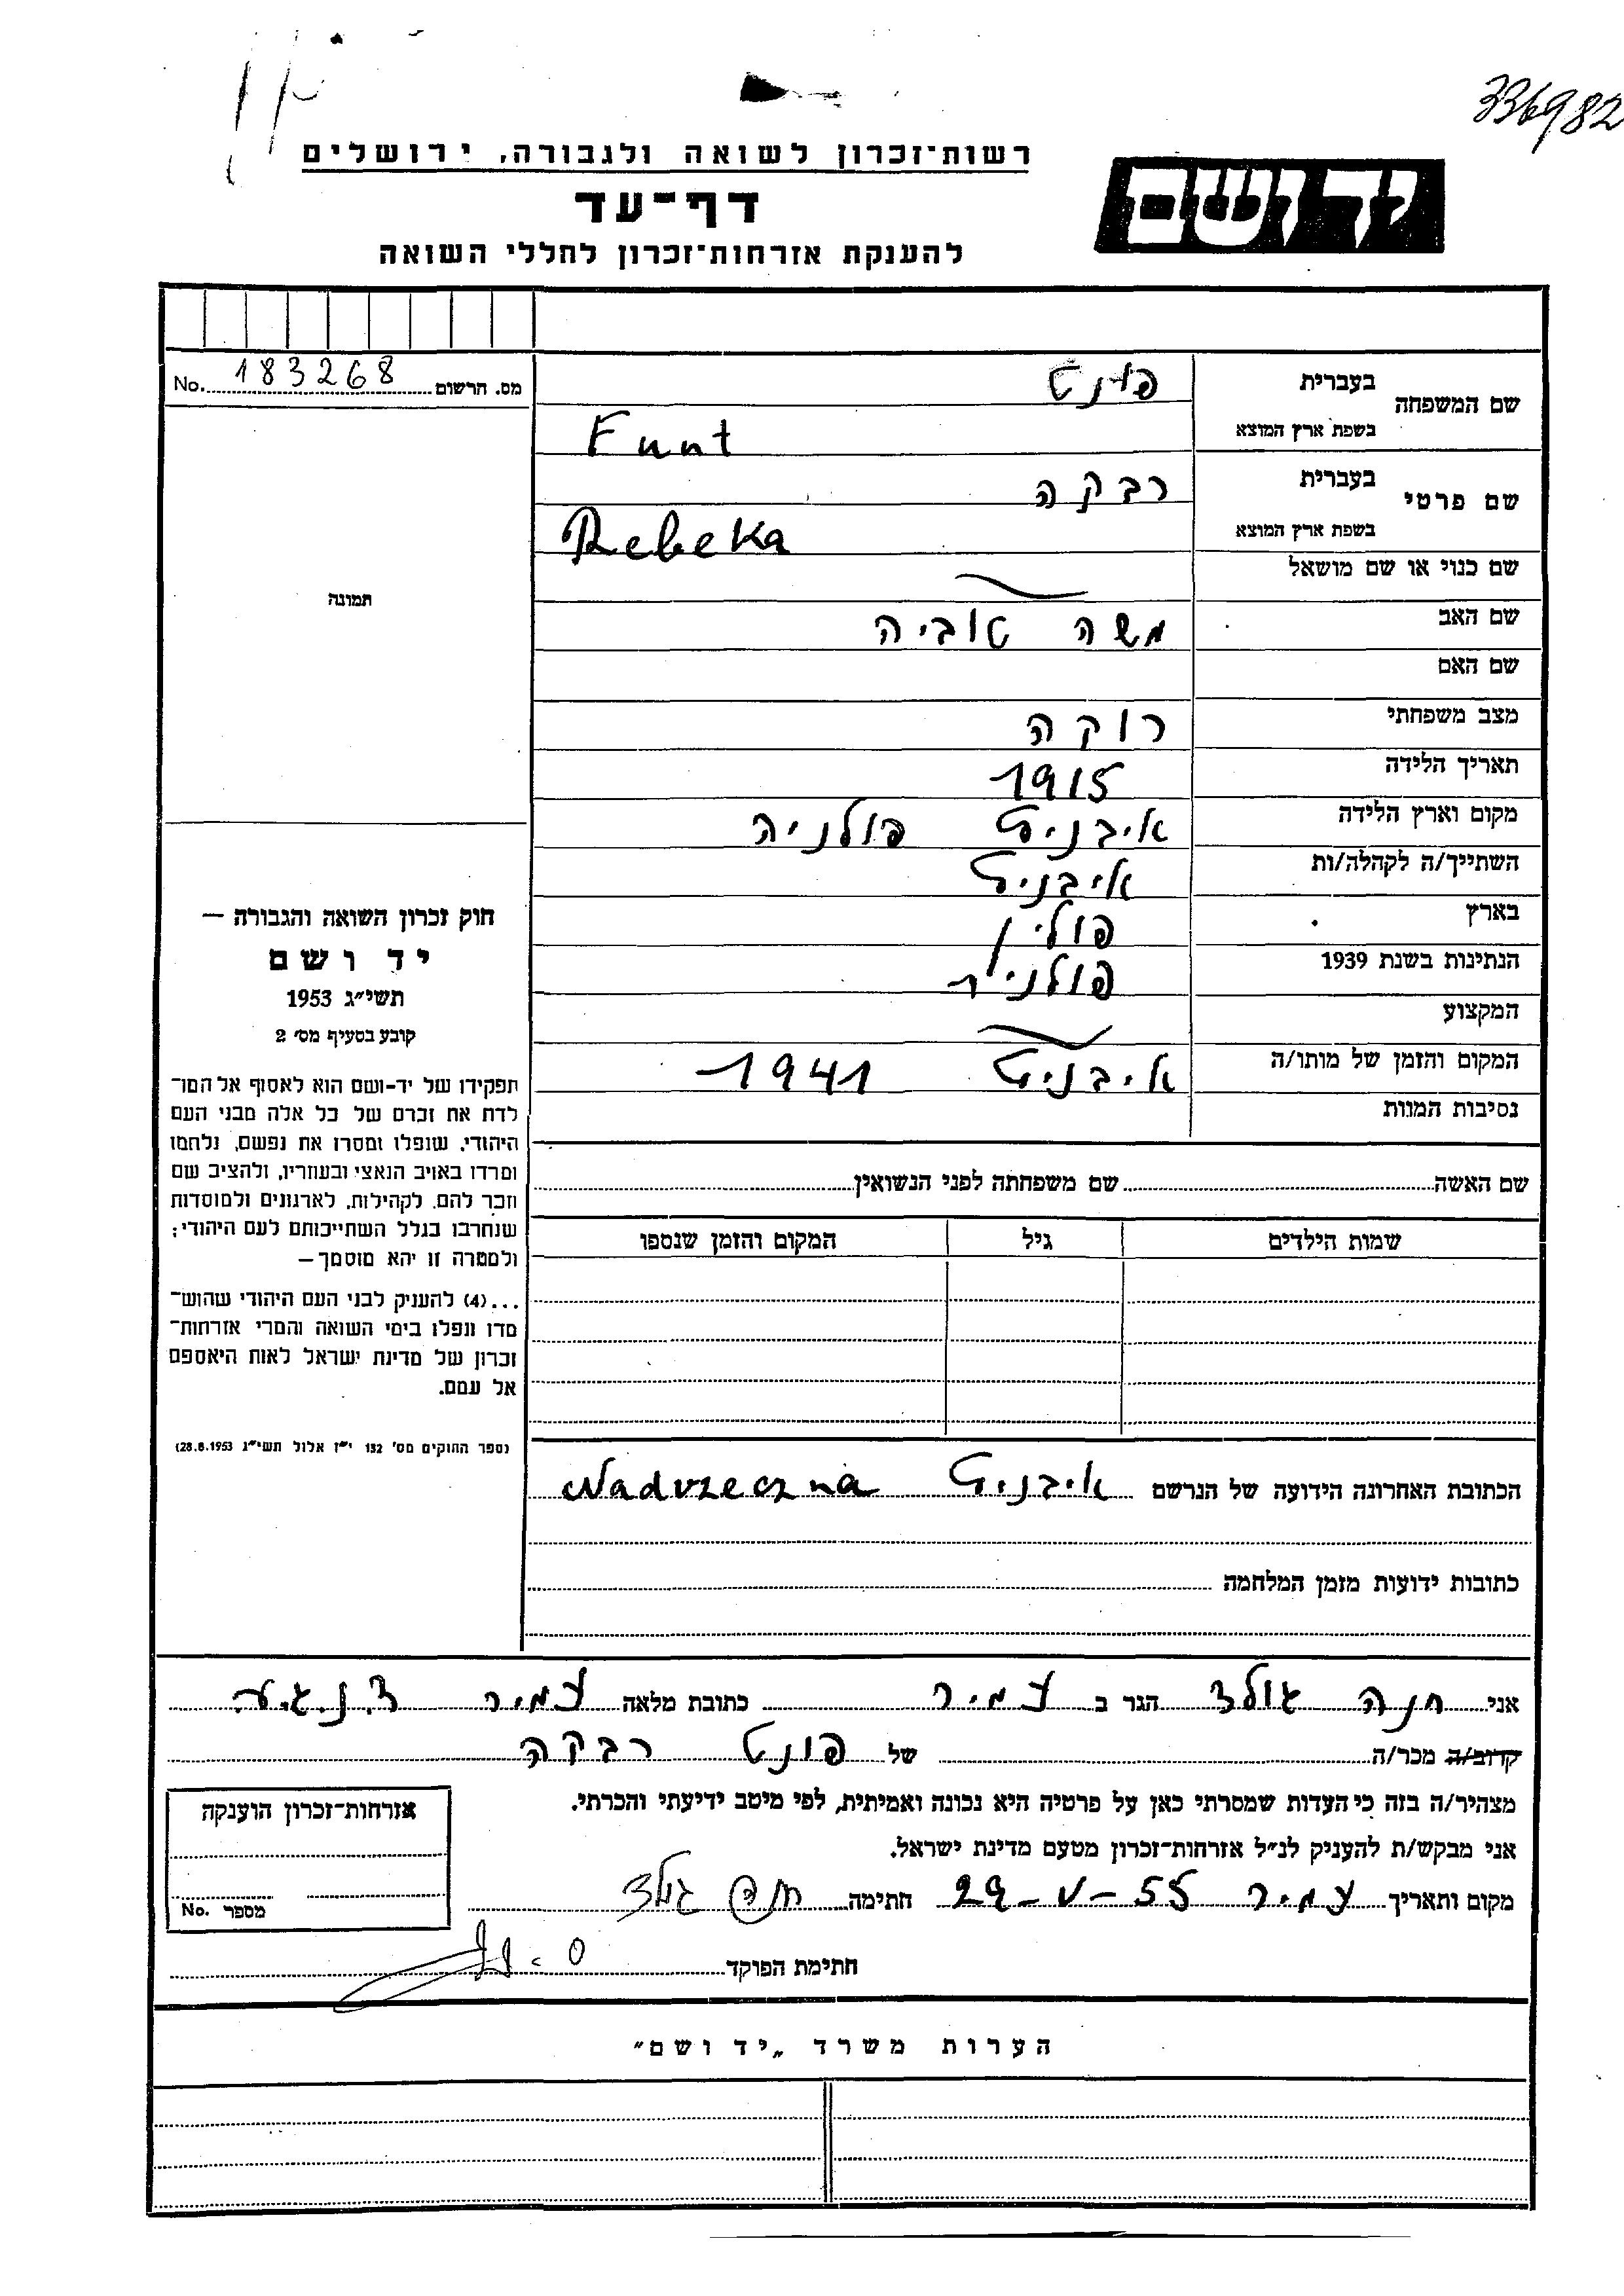 336982
רשות־זכרון לשואה ולגבורה, ירושלים
יד ושם
דף־עד
להענקת אזרחות־זכרון לחללי השואה
מס. הרשום 183268 No.
שם המשפחה
בעברית פונט
בשפת ארץ המוצא Funt
שם פרטי
בעברית רבקה
בשפת ארץ המוצא Rebeka
שם כנוי או שם מושאל
שם האב משה טוביה
שם האם
מצב משפחתי רוקה
תאריך הלידה 1915
מקום וארץ הלידה איבניט פולניה
השתייך/ה לקהלה/ות איבניט
בארץ פולין
הנתינות בשנת 1939
המקצוע
המקום והזמן של מותו/ה איבניט 1941
נסיבות המוות
תמונה
חוק זכרון השואה והגבורה —
יד ושם
תשי״ג 1953
קובע בסעיף מס׳ 2
תפקידו של יד-ושם הוא לאסוף אל המו־
לדת את זכרם של כל אלה מבני העם
היהודי, שנפלו ומסרו את נפשם, נלחמו
ומרדו באויב הנאצי ובעוזריו, ולהציב שם
וזכר להם, לקהילות, לארגונים ולמוסדות
שנחרבו בגלל השתייכותם לעם היהודי;
ולמטרה זו יהא מוסמך—
...(4) להעניק לבני העם היהודי שהוש־
מדו ונפלו בימי השואה והמרי אזרחות־
זכרון של מדינת ישראל לאות היאספם
אל עמם.
(ספר החוקים מס׳ 132 י״ז אלול תשי״ג 28.8.1953)
שם האשה שם משפחתה לפני הנשואין
שמות הילדים גיל המקום והזמן שנספו
הכתובת האחרונה הידועה של הנרשם איבניט Nadrzeczna
כתובות ידועות מזמן המלחמה
אני חנה גולד הגר ב עמיר כתובת מלאה עמיר ד.נ.ג.ע.
קרוב/ה מכר/ה של פונט רבקה
מצהיר/ה בזה כי העדות שמסרתי כאן על פרטיה היא נכונה ואמיתית, לפי מיטב ידיעתי והכרתי.
אני מבקש/ת להעניק לנ״ל אזרחות־זכרון מטעם מדינת ישראל.
מקום ותאריך עמיר 29-V-55 חתימה חנה גולד
חתימת הפוקד
אזרחות־זכרון הוענקה
מספר No.
הערות משרד „יד ושם״